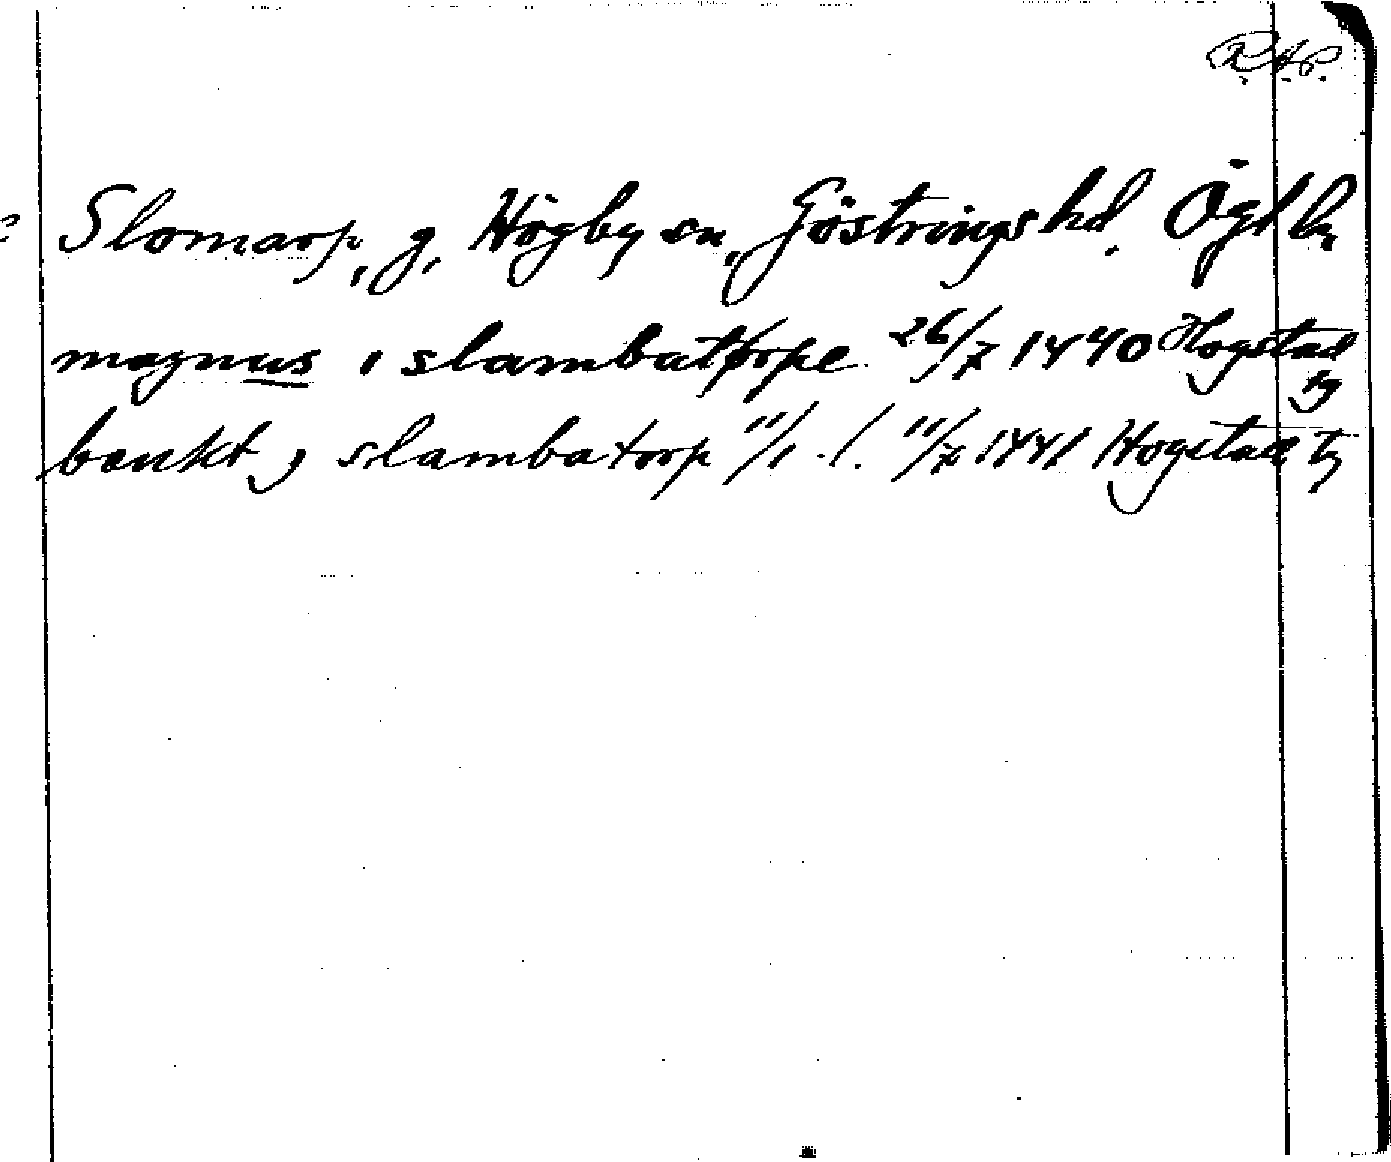 R.A.P.
Slomarp, g, Högby sn, Göstrings hd. Ögl ln
magnus i slambatþorpe 26/7 1440 Hogstad
tg
bænkt j slambatorp 11/1 . l. 11/7 1441 Hogstad tg